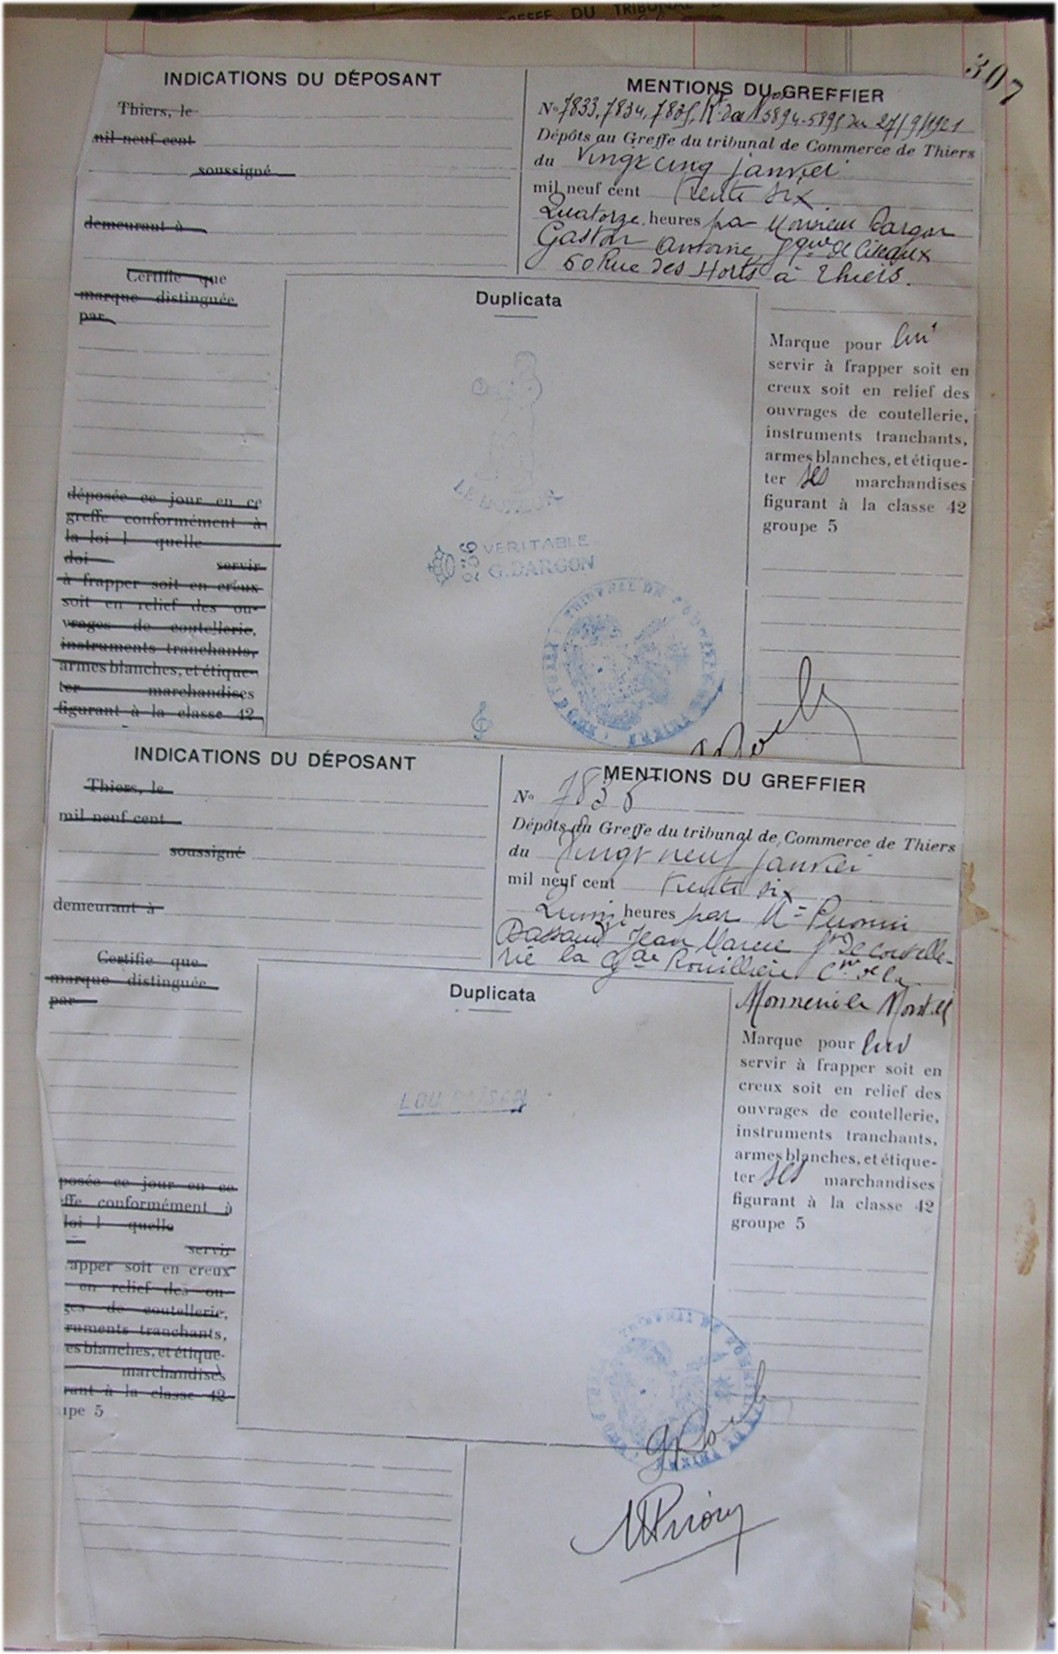 307
INDICATIONS DU DÉPOSANT
Thiers, le
mil neuf cent
soussigné
demeurant à
Certifie que
marque distinguée
par
déposée ce jour en ce
greffe conformément à
la loi l quelle
doi servir
à frapper soit en creux
soit en relief des ou-
vrages de coutellerie,
instruments tranchants,
armes blanches, et étique-
ter marchandises
figurant à la classe 42
MENTIONS DU GREFFIER
No 7833, 7834, 7835, 5894-5895 du 27/9/1921
Dépôts au Greffe du tribunal de Commerce de Thiers
du Vingt cinq janvier
mil neuf cent trente six
Quatorze heures par Monsieur Dargon
Gaston Antoine
60 Rue des Horts à Thiers.
Duplicata
VERITABLE
G. DARGON
Marque pour lui
servir à frapper soit en
creux soit en relief des
ouvrages de coutellerie,
instruments tranchants,
armes blanches, et étique-
ter ses marchandises
figurant à la classe 42
groupe 5
INDICATIONS DU DÉPOSANT
Thiers, le
mil neuf cent
soussigné
demeurant à
Certifie que
marque distinguée
par
posée ce jour en ce
effe conformément à
loi l quelle
servir
apper soit en creux
en relief des ou-
ges de coutellerie,
ruments tranchants,
es blanches, et étique-
marchandises
rant à la classe 42
upe 5
MENTIONS DU GREFFIER
No 7836
Dépôts au Greffe du tribunal de Commerce de Thiers
du Vingt neuf janvier
mil neuf cent trente six
heures par
Jean
rie la
Duplicata
LOU
Marque pour lui
servir à frapper soit en
creux soit en relief des
ouvrages de coutellerie,
instruments tranchants,
armes blanches, et étique-
ter ses marchandises
figurant à la classe 42
groupe 5